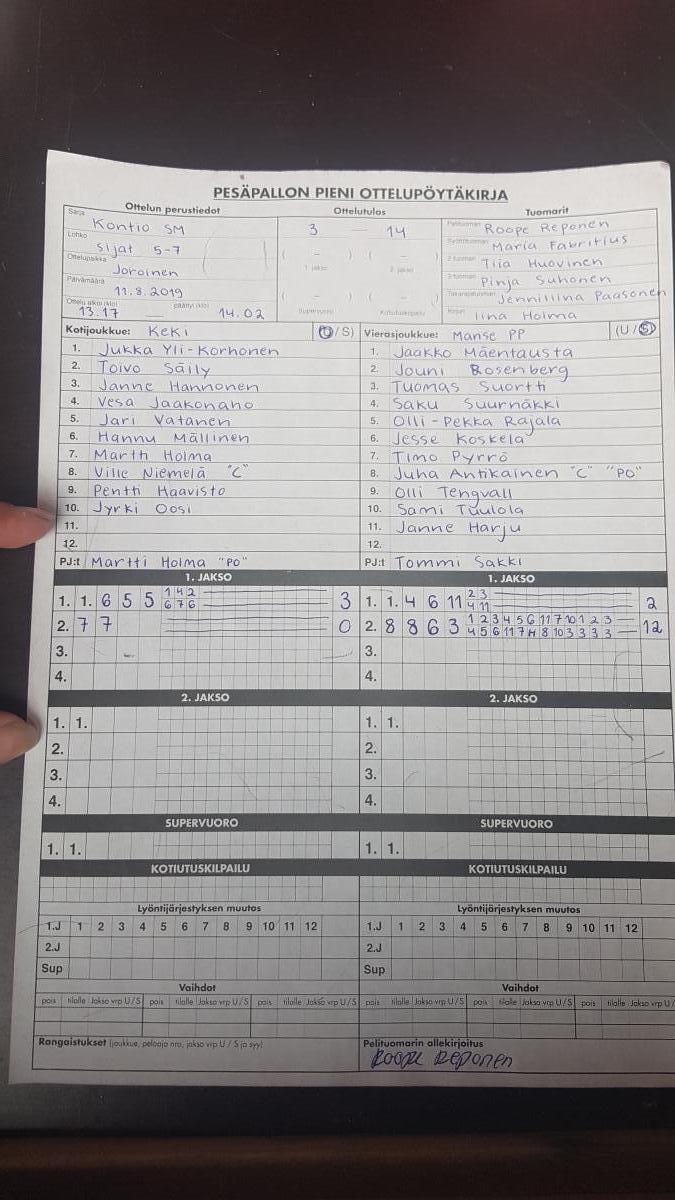 PESÄPALLON PIENI OTTELUPÖYTÄKIRJA
Ottelun perustiedot Ottelutulos Tuomarit
Sarja Kontio SM
Lohko Sijat 5-7
Ottelupaikka Joroinen
Päivämäärä 11.8.2019
Ottelu alkoi (klo) 13.17 päättyi (klo) 14.02
3 – 14
( – ) ( – )
1. jakso 2. jakso
( – ) ( – )
Supervuoro Kotiutuskilpailu
Pelituomari Roope Reponen
Syöttötuomari Maria Fabritius
2-tuomari Tiia Huovinen
3-tuomari Pinja Suhonen
Takarajatuomari Jenniliina Paasonen
Kirjuri Iina Holma
Kotijoukkue: KeKi (U/S)
1. Jukka Yli-Korhonen
2. Toivo Säily
3. Janne Hannonen
4. Vesa Jaakonaho
5. Jari Vatanen
6. Hannu Mällinen
7. Martti Holma
8. Ville Niemelä "C"
9. Pentti Haavisto
10. Jyrki Oosi
11.
12.
PJ:t Martti Holma "PO"
Vierasjoukkue: Manse PP (U/S)
1. Jaakko Mäentausta
2. Jouni Rosenberg
3. Tuomas Suortti
4. Saku Suurnäkki
5. Olli-Pekka Rajala
6. Jesse Koskela
7. Timo Pyrrö
8. Juha Antikainen "C" "PO"
9. Olli Tengvall
10. Sami Tuulola
11. Janne Harju
12.
PJ:t Tommi Sakki
1. JAKSO 1. JAKSO
1. 1. 6 5 5 1 4 2 3
6 7 6
2. 7 7 0
3.
4.
1. 1. 4 6 11 2 3 2
4 11
2. 8 8 6 3 1 2 3 4 5 6 11 7 10 1 2 3 12
4 5 6 11 7 H 8 10 3 3 3 3
3.
4.
2. JAKSO 2. JAKSO
1. 1. 1. 1.
2. 2.
3. 3.
4. 4.
SUPERVUORO SUPERVUORO
1. 1. 1. 1.
KOTIUTUSKILPAILU KOTIUTUSKILPAILU
Lyöntijärjestyksen muutos Lyöntijärjestyksen muutos
1.J 1 2 3 4 5 6 7 8 9 10 11 12 1.J 1 2 3 4 5 6 7 8 9 10 11 12
2.J 2.J
Sup Sup
Vaihdot Vaihdot
pois tilalle Jakso vrp U/S pois tilalle Jakso vrp U/S pois tilalle Jakso vrp U/S pois tilalle Jakso vrp U/S pois tilalle Jakso vrp U/S pois tilalle Jakso vrp U/
Rangaistukset (joukkue, pelaaja nro, jakso vrp U / S ja syy)
Pelituomarin allekirjoitus
Roope Reponen